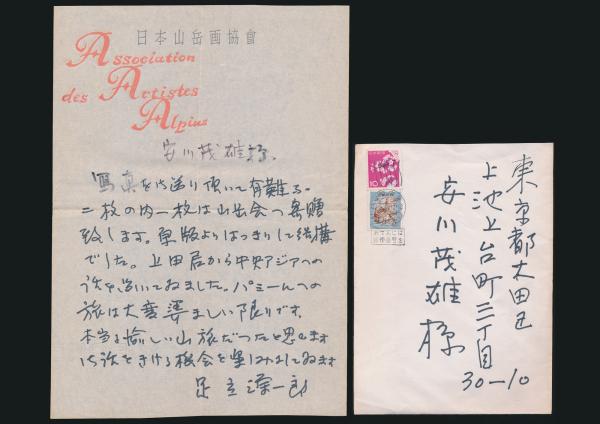 日本山岳画協會
Association
des Artistes
Alpins
安川茂雄様
寫真を御送り頂いて有難う。
二枚の内一枚は山岳会へ寄贈
致します。原版よりはっきりして結構
でした。上田君から中央アジアへの
パミールへの
旅は大変羨ましい限りです。
本当に愉しい山旅だったと思います
御話をきける機会を望みおります
足立源一郎
東京都大田区
上池上台町三丁目
30-10
安川茂雄様
10